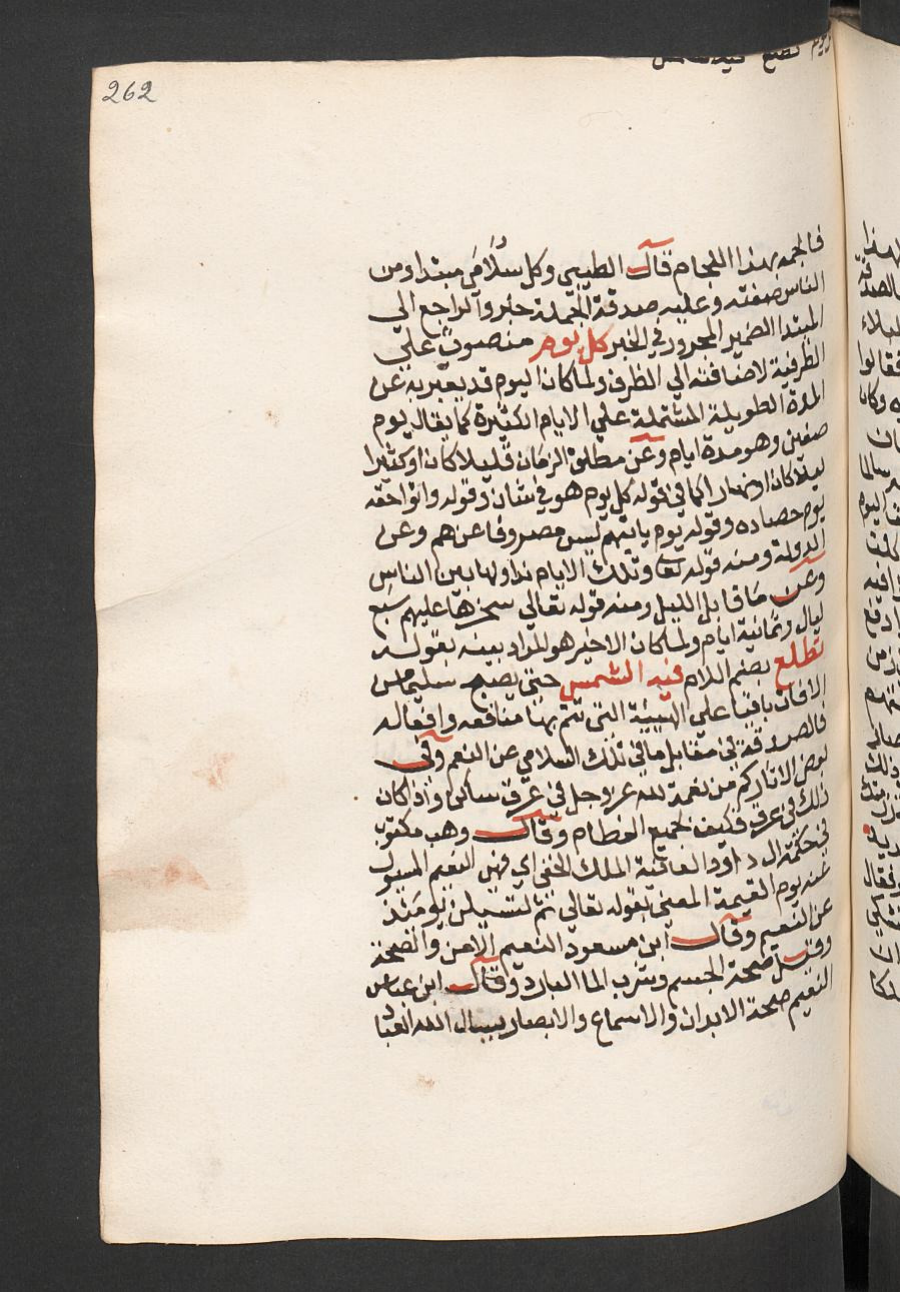 262
فالجمه بهذا اللجام قال الطيبي وكل سُلَامَي مبتدا ومن
الناس صفته وعليه صدقة الجملة خبر والراجع الي
المبتدا الضمير المجرور في الخبر كل يوم منصوب علي
الظرفية لاضافته الي الظرف ولما كان اليوم قد يعبر به عن
المدة الطويلة المشتملة علي الايام الكثيرة كما يقال يوم
صفين وهو مدة ايام وعن مطلق الزمان قليلا كان او كثيرا
ليلا كان او نهارا كما في قوله كل يوم هو في شان وقوله واتوا حقه
يوم حصاده وقوله يوم ياتيهم ليس مصروفا عنهم وعن
الدولة ومنه قوله تعا وتلك الايام نداولها بين الناس
وعن ما قابل الليل ومنه قوله تعالي سخرها عليهم سبع
ليال وثمانية ايام ولما كان الاخير هو المراد بينه بقوله
تطلع بضم اللام فيه الشمس حتي يصبح سليما من
الافات باقيا علي الهيئة التي تتم بها منافعه وافعاله
فالصدقة في مقابل ما في تلك السلامي من النعم وفي
بعض الاثار كم من نعمة لله عز وجل في عرق ساكن واذا كان
ذلك في عرق فكيف بجميع العظام وقال وهب مكتوب
في حكمة ال داوود العافية الملك الخفي اي فهي النعيم المسول
عنه يوم القيمة المعني بقوله تعالي ثم لتسيلن يومئذ
عن النعيم وقال ابن مسعود النعيم الامن والصحة
وقيل صحة الجسم وشرب الما البارد وقال ابن عباس
النعيم صحة الابدان والاسماع والابصار يسال الله العباد